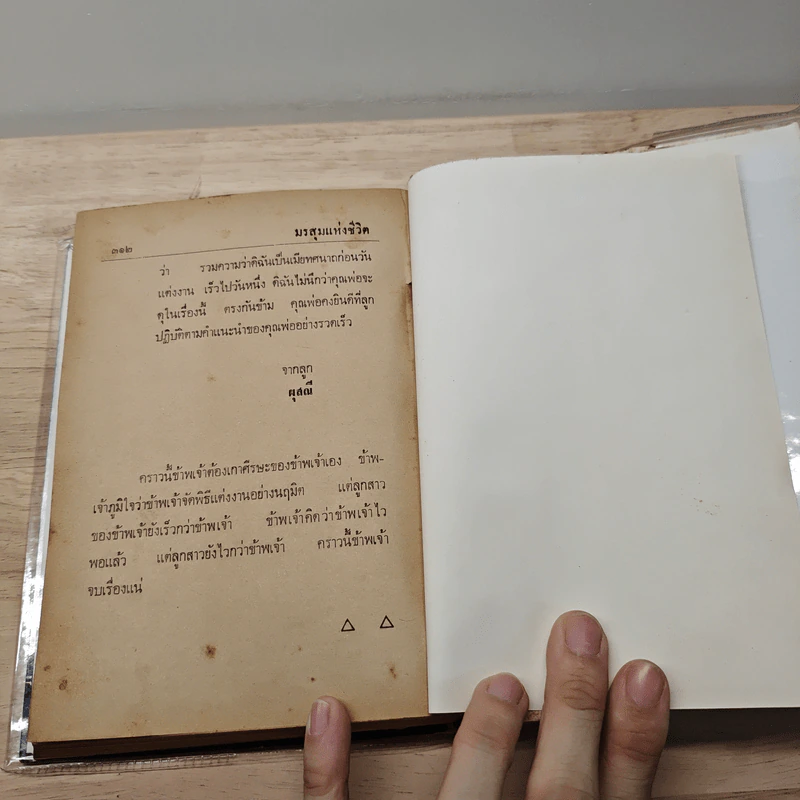 มรสุมแห่งชีวิต
๓๑๒
ว่า รวมความว่าดิฉันเป็นเมียทศนาถก่อนวัน
แต่งงาน เร็วไปวันหนึ่ง ดิฉันไม่นึกว่าคุณพ่อจะ
ดุในเรื่องนี้ ตรงกันข้าม คุณพ่อคงยินดีที่ลูก
ปฏิบัติตามคำแนะนำของคุณพ่ออย่างรวดเร็ว
จากลูก
ผุสณี
คราวนี้ข้าพเจ้าต้องเกาศีรษะของข้าพเจ้าเอง ข้าพ-
เจ้าภูมิใจว่าข้าพเจ้าจัดพิธีแต่งงานอย่างนฤมิต แต่ลูกสาว
ของข้าพเจ้ายังเร็วกว่าข้าพเจ้า ข้าพเจ้าคิดว่าข้าพเจ้าไว
พอแล้ว แต่ลูกสาวยังไวกว่าข้าพเจ้า คราวนี้ข้าพเจ้า
จบเรื่องแน่